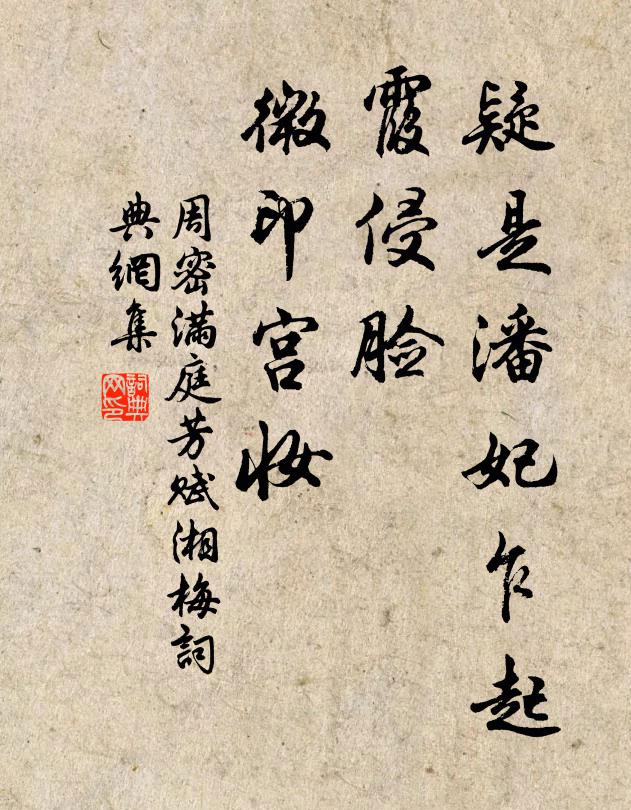 疑是潘妃乍起
霞侵脸
微印宫妆
周密满庭芳赋湘梅詞
典網集
詞典
网印